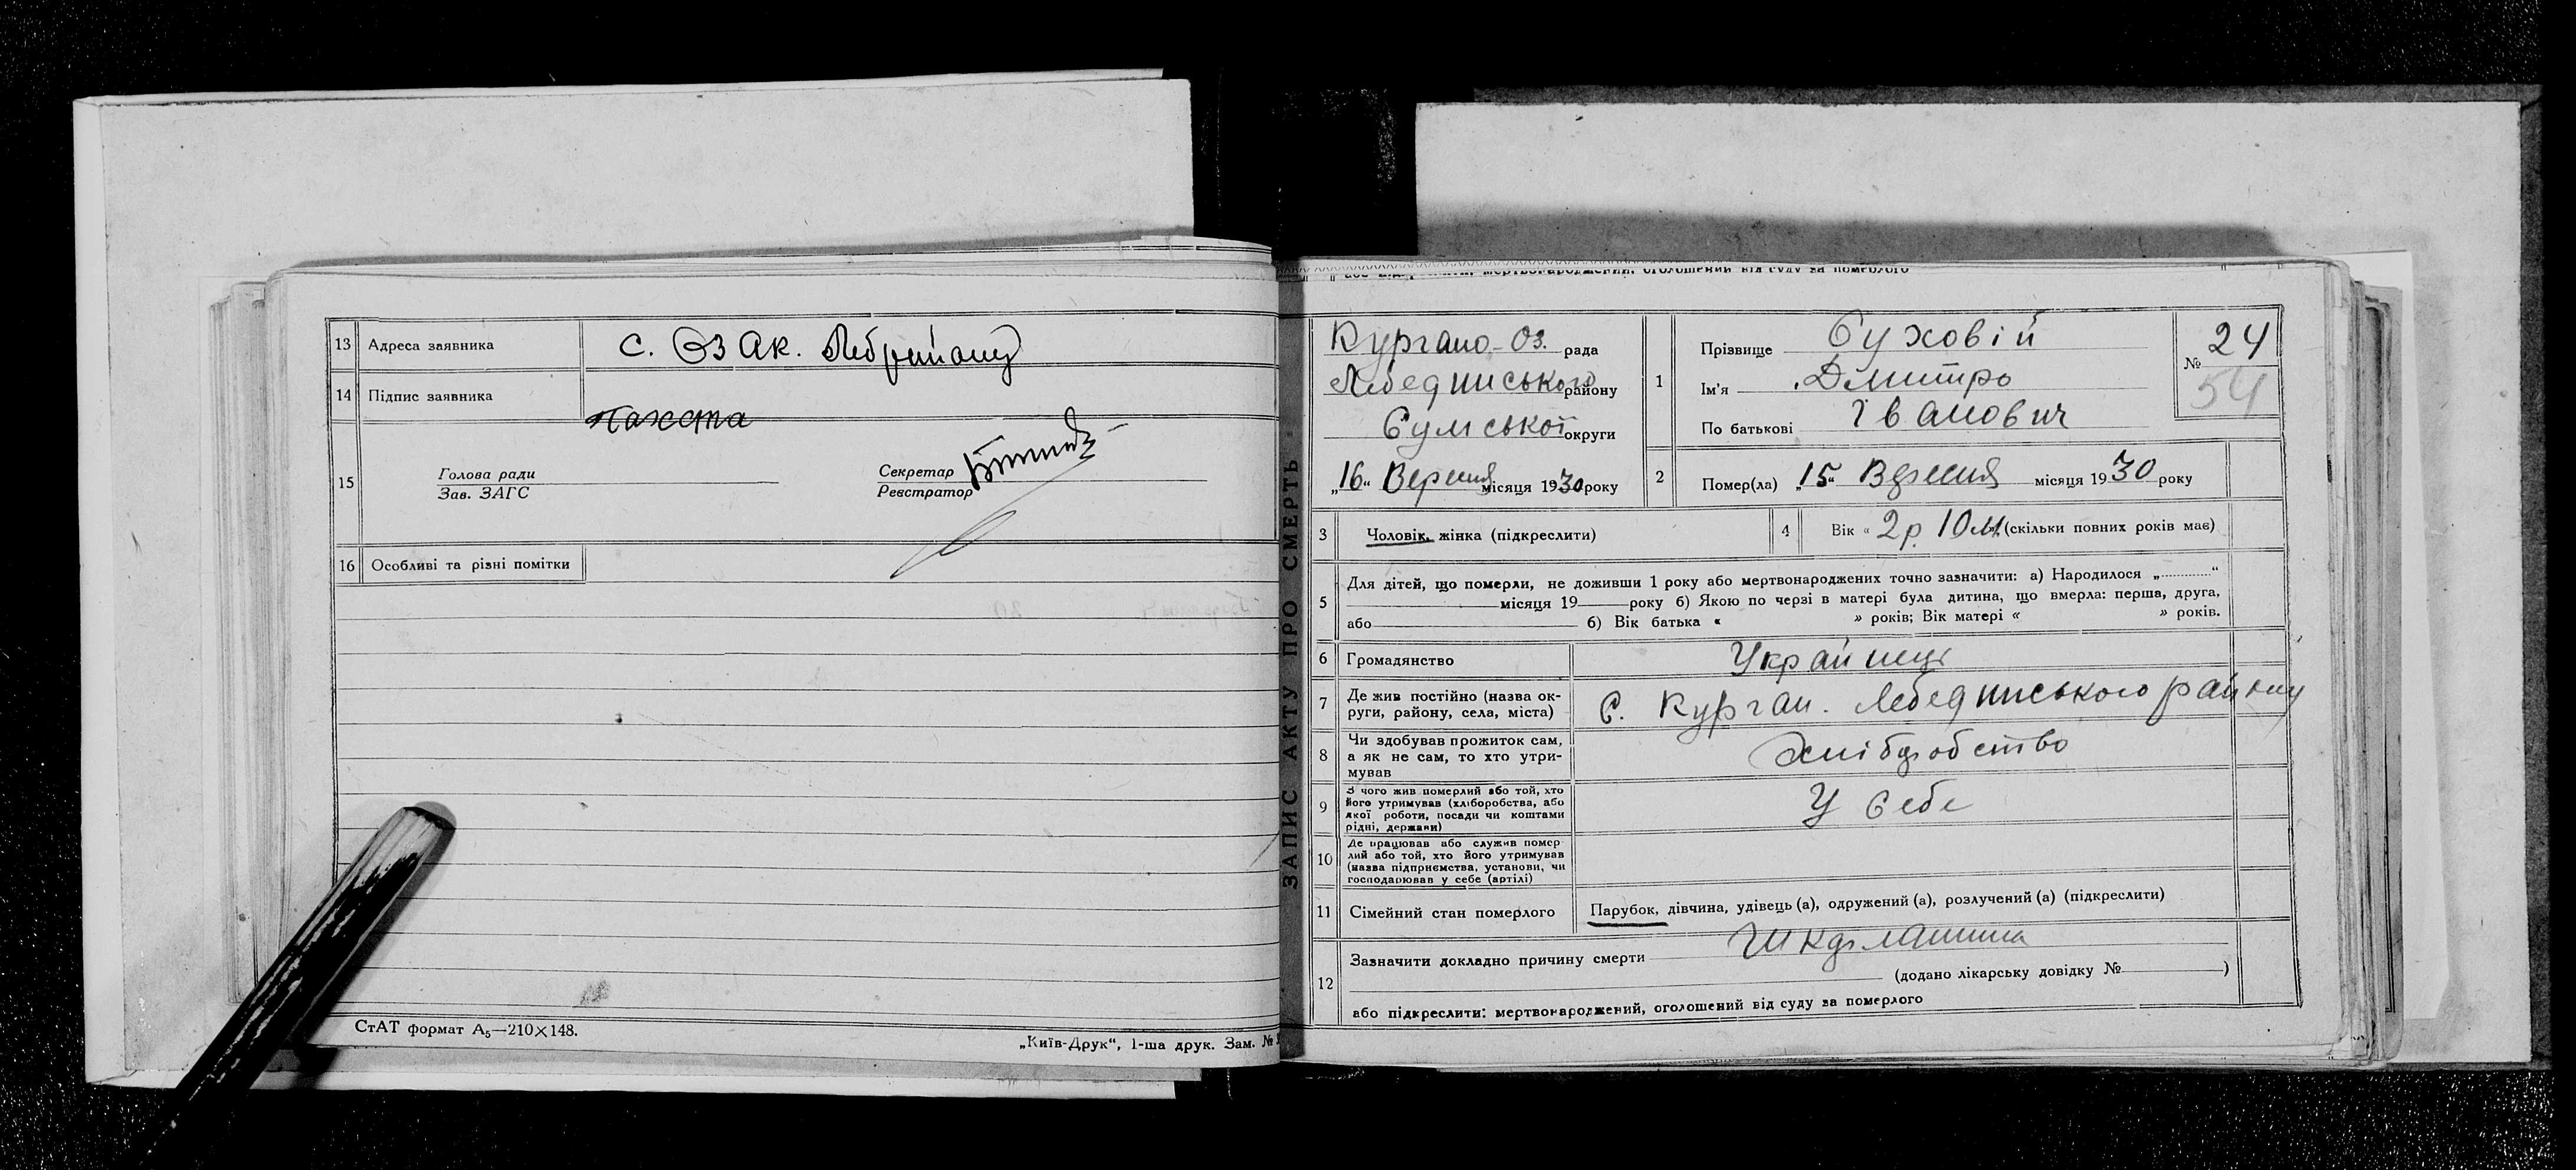 13 Адреса заявника с. Озак. Лебрайону
14 Підпис заявника
15 Голова ради
Зав. ЗАГС
Секретар
Реєстратор
16 Особливі та різні помітки
СтАТ формат А5—210×148.
„Київ-Друк“, 1-ша друк. Зам. №
ЗАПИС АКТУ ПРО СМЕРТЬ
мертвонароджений, оголошений від суду за померлого
Кургано-Оз. рада
Лебединського району
Сумської округи
„16“ Вересня місяця 1930 року
1 Прізвище Суховій
Ім’я Дмитро
По батькові Іванович
№ 24
54
2 Помер(ла) „15“ Вересня місяця 1930 року
3 Чоловік, жінка (підкреслити)
4 Вік « 2р 10м. (скільки повних років має)
5 Для дітей, що померли, не доживши 1 року або мертвонароджених точно зазначити: а) Народилося „ “
місяця 19 року б) Якою по черзі в матері була дитина, що вмерла: перша, друга,
або б) Вік батька « » років; Вік матері « » років.
6 Громадянство Українець
7 Де жив постійно (назва ок-
руги, району, села, міста) С. Курган. Лебединського району
8 Чи здобував прожиток сам,
а як не сам, то хто утри-
мував хліборобство
9 З чого жив померлий або той, хто
його утримував (хліборобства, або
якої роботи, посади чи коштами
рідні, держави) У себе
10 Де працював або служив помер
лий або той, хто його утримував
(назва підприємства, установи, чи
господарював у себе (артілі)
11 Сімейний стан померлого Парубок, дівчина, удівець(а), одружений(а), розлучений(а) (підкреслити)
12 Зазначити докладно причину смерти Шкарлатина
(додано лікарську довідку № )
або підкреслити: мертвонароджений, оголошений від суду за померлого